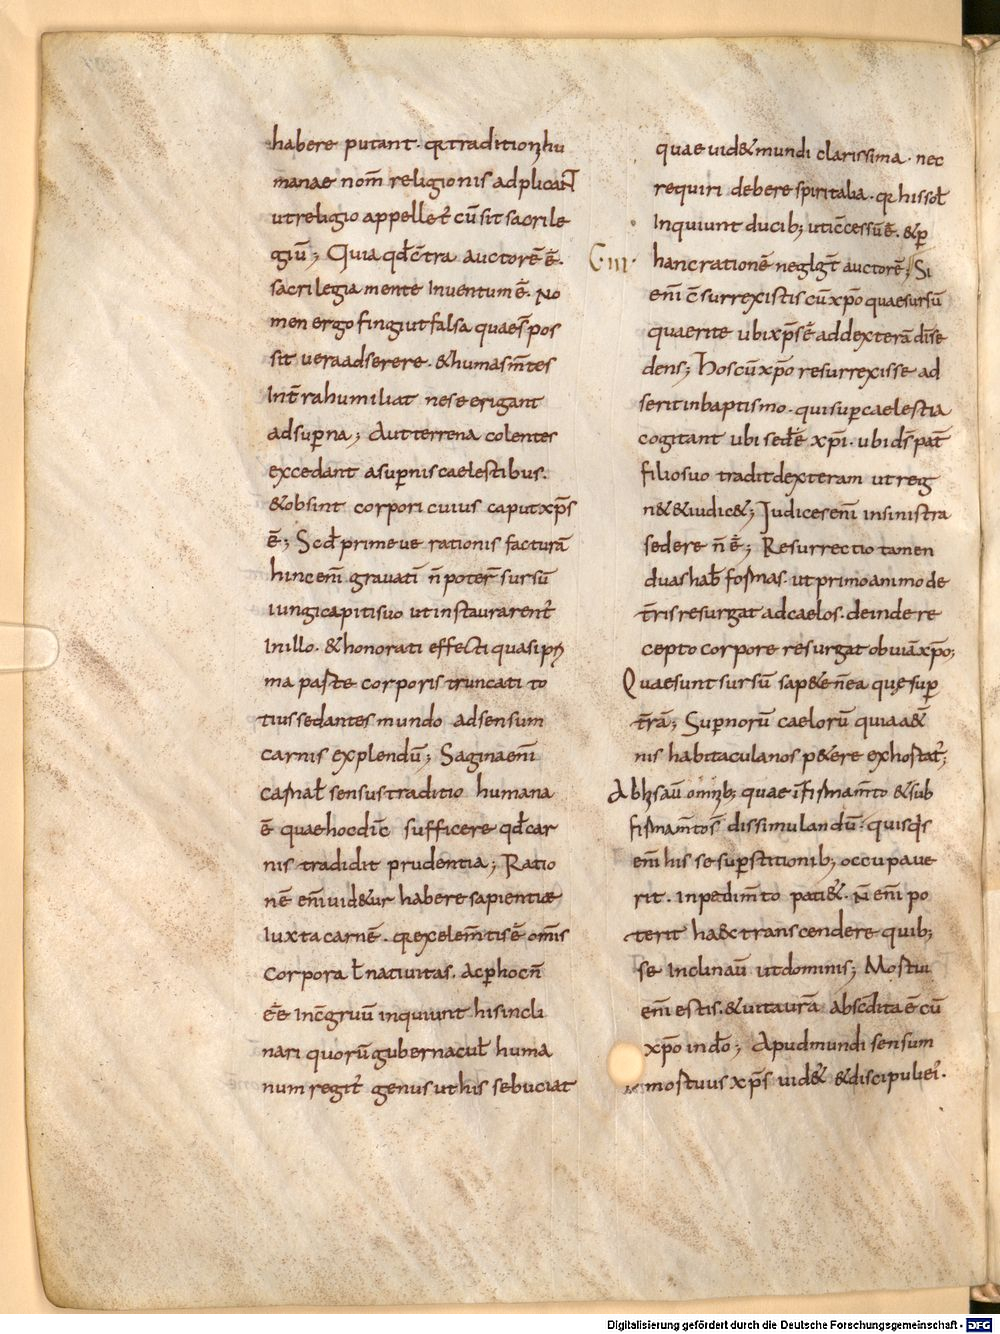 habere putant · qr traditionẽ hu
manae nom̄ religionis adplicarꞇ̄
ut religio appellet̄ cū sit sacrile
giū; Quia qđ c̄tra auctorē ē̄·
sacrilegia mente Inventum ē̄· No
men ergo fingi ut falsa quaes̄ pos
sit vera adserere · & humas m̄tes
Int̄ra humiliat ne se erigant
ad sup̱na; Aut terrena colentes
excedant a sup̱nis caelestibus·
& obsint corpori cuius caput xp̄s
ē̄; Scđ primeve rationis facturā
hinc enī gravatī n̄ poter̄ sursū
iungi capiti suo ut instaurarent̄
In illo · & honorati effecti quasi
ma paste corporis truncati to
tius sedantes mundo ad sensum
carnis explendū; Sagina enī
carnał sensus traditio humana
ē̄ quae hoc dic̄ sufficere qđ car
nis tradidit prudentia; Ratio
nē enī vid&ur habere sapientiæ
Iuxta carnē · qr ex elem̄tis ē̄ om̄is
corpora ł nativitas · ac p̱ hoc n̄
ēe Inc̄gruū inquiunt his incli
nari quorū gubernacuł huma
num regit̄ genus ut his se buciat
quae vid& mundi clarissima · nec
requiri debere spiritalia · qr his soł
Inquiunt ducib; uti c̄cessū ē̄· & p̱
C III · hanc rationē neglgt̄ auctorē; Si
enī c̄surrexistis cū xp̄o quae sursū
quaerite ubi xp̄s ē̄ ad dexterā dī se
dens; Hos cū xp̄o resurrexisse ad
serit in baptismo · qui sup̱ caelestia
cogitant ubi sedēe xp̄i· ubi ds̄ pat̄
filio suo tradit dexteram ut reg
n& & iudic&; Judices enī in sinistra
sedere n̄ ē̄; Resurrectio tamen
duas hab̄ formas · ut primo animo de
t̄ris resurgat ad caelos · deinde re
cepto corpore resurgat obviā xp̄o;
Quae sunt sursū sap&e n̄ ea quę sup̱
t̄rā; Sup̱norū caelorū quia a&
nis habitacula nos p&ere exhortat̄;
Ab his aū omĩb; quae ī firmam̄to & sub
firmam̄to s̄ dissimulandū· quisqs
enī his se sup̱stitionib; occupave
rit · inpedim̄to pati&· N̄ enī po
terit haec transcendere quib;
se Inclinaū ut dominis; Mortui
enī estis · & vita vr̄a absc̄dita ē cū
xp̄o in do; Apud mundi sensum
mortuus xp̄s vid& & discipuli ei·
Digitalisierung gefördert durch die Deutsche Forschungsgemeinschaft - DFG